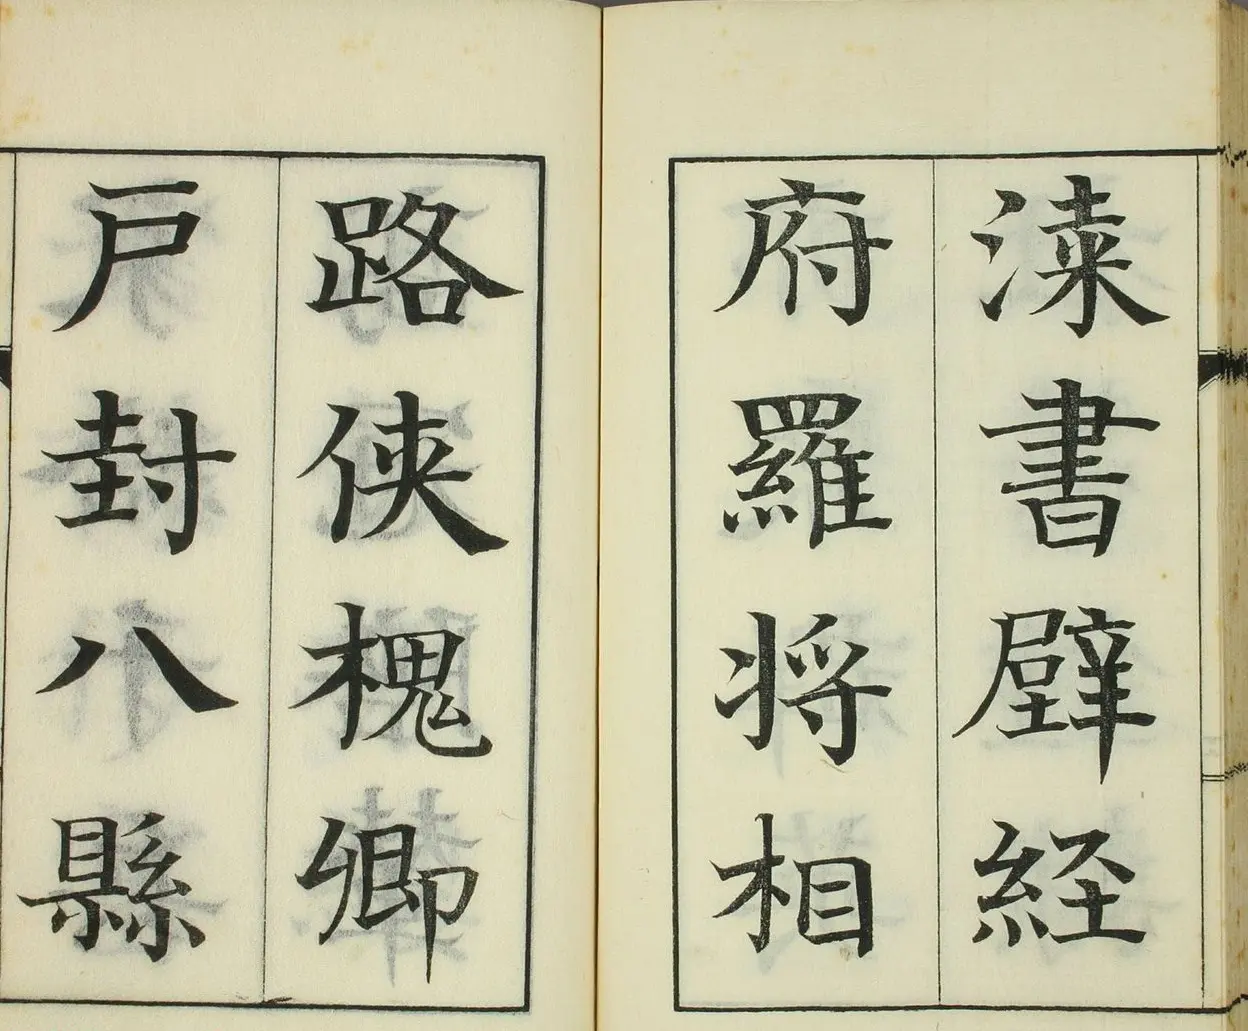 漆書壁経
府羅将相
路侠槐卿
戸封八縣